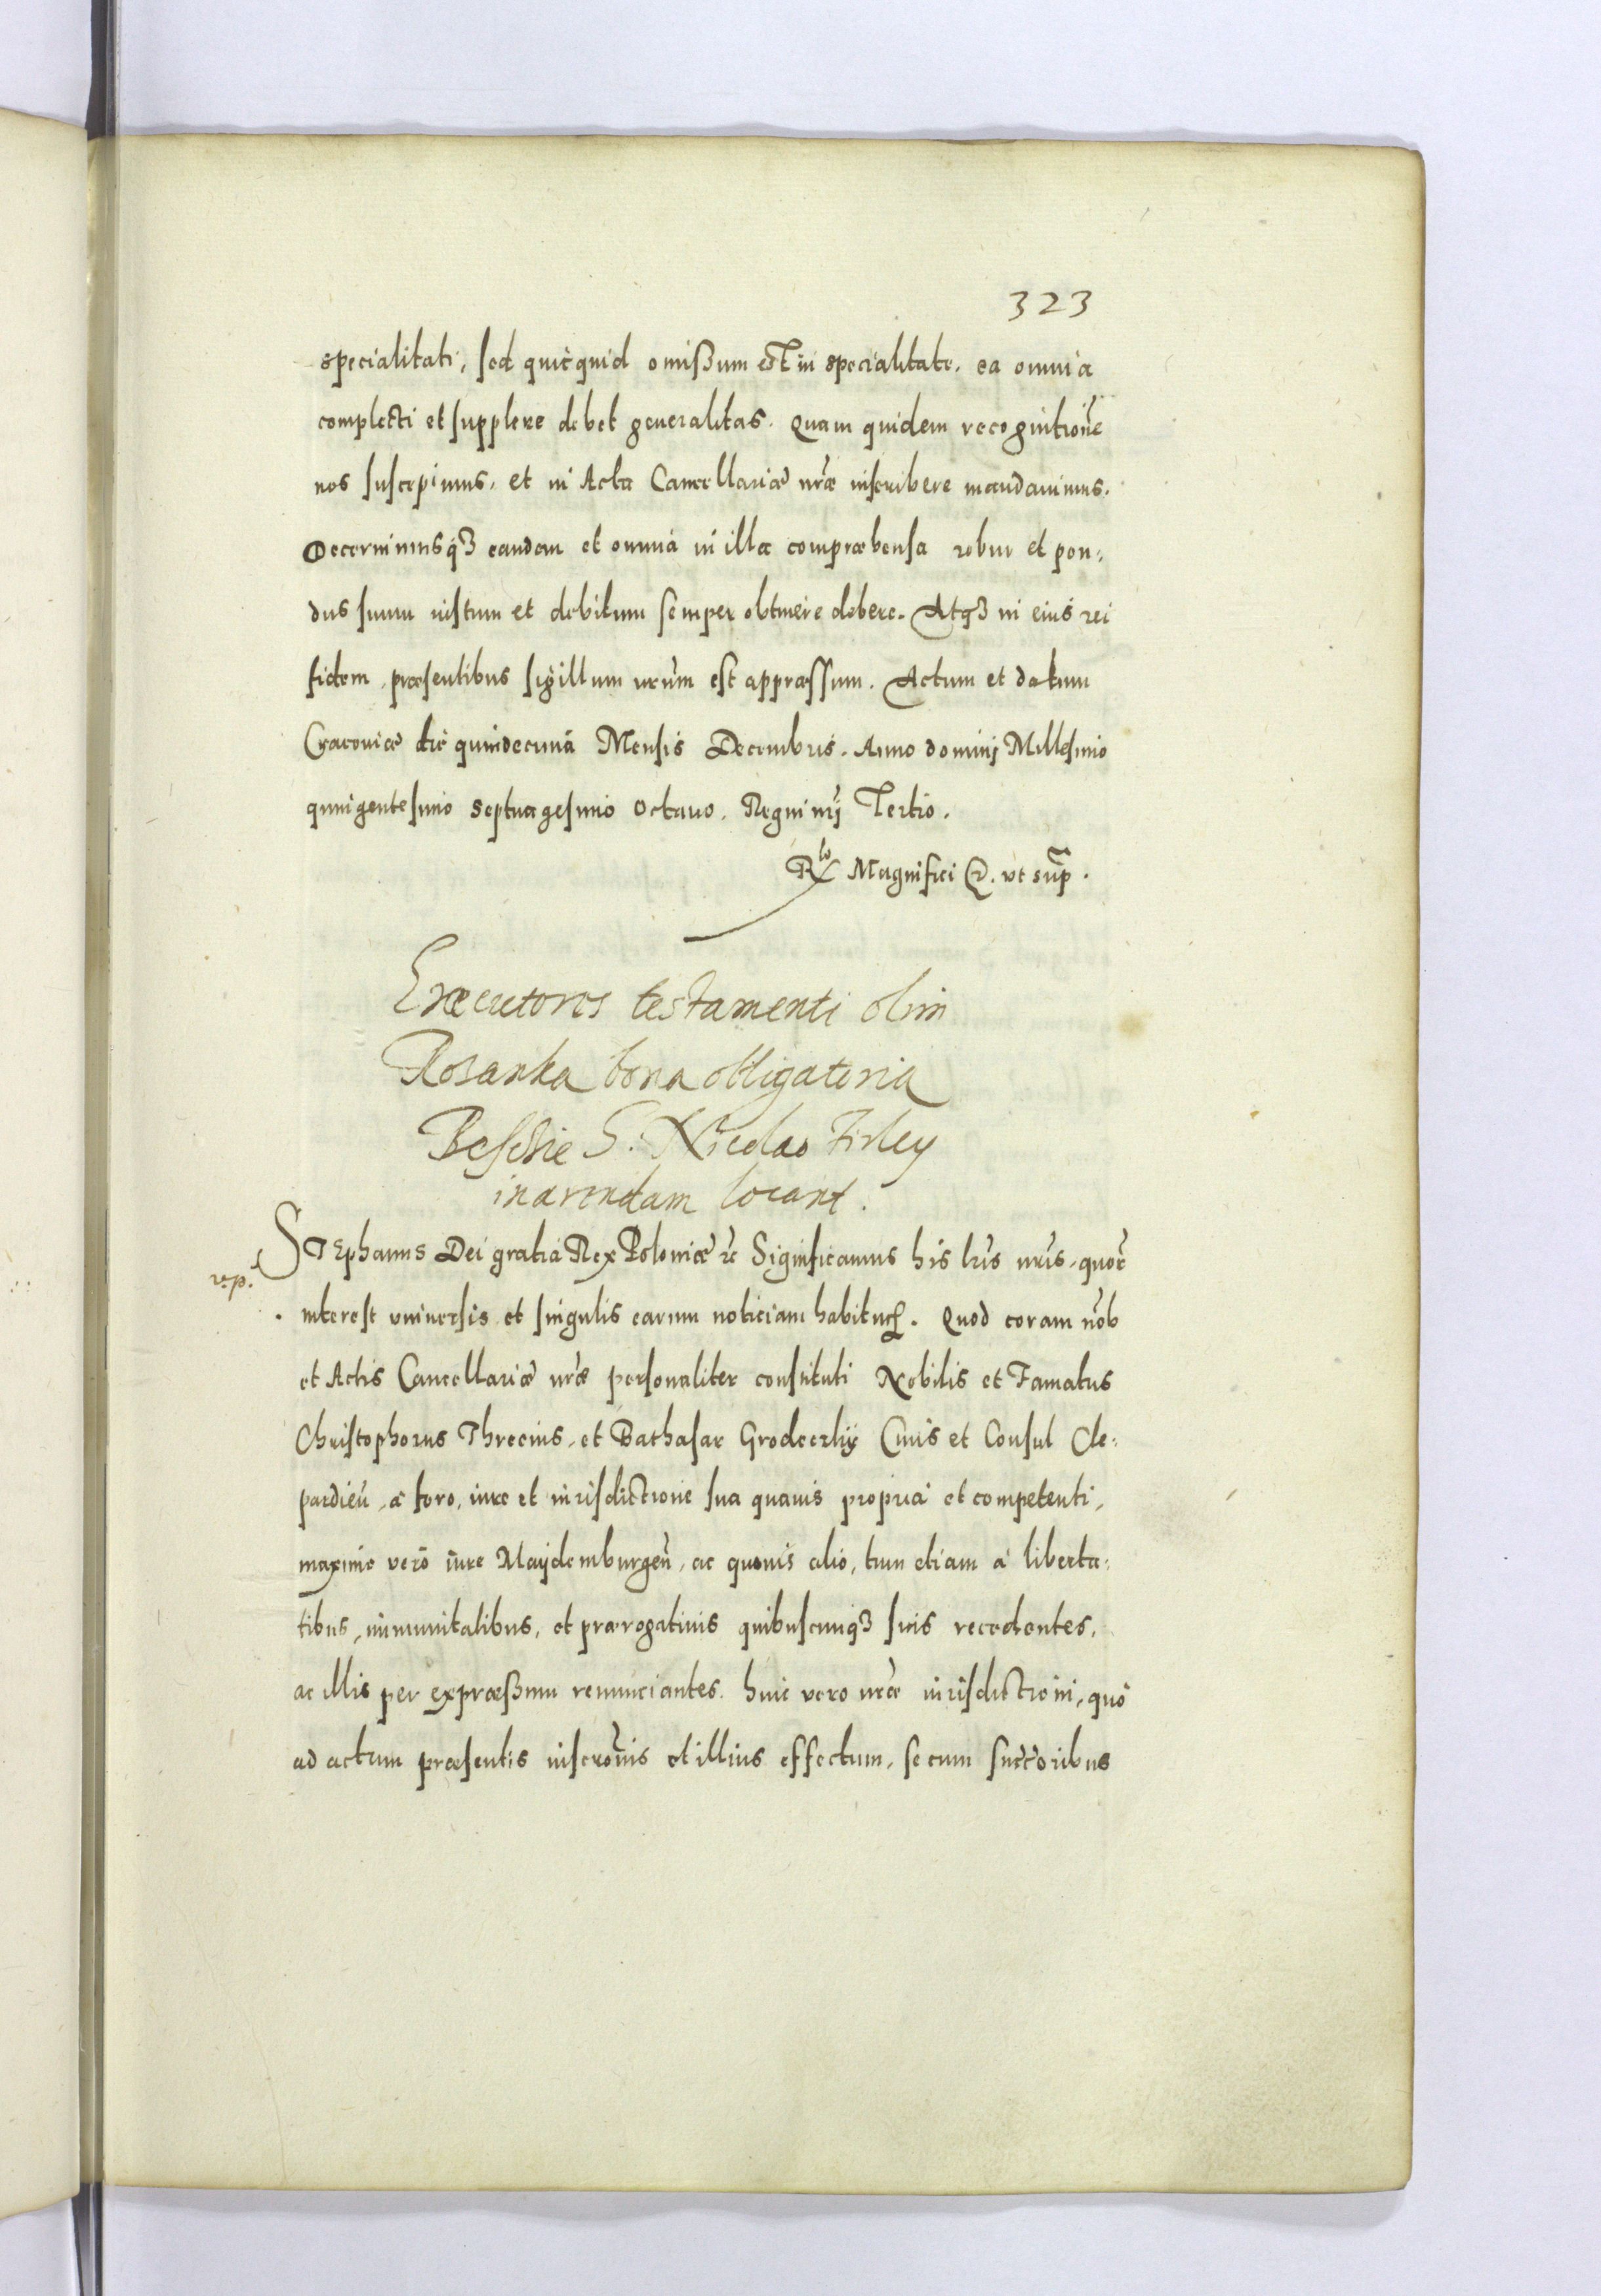 323
specialitati, sed quicquid omißum est in specialitate, ea omnia
complecti et supplere debet generalitas. Quam quidem recognitionē
nos suscepimus, et in Acta Cancellariæ nr̄æ inscribere mandauimus.
Decernimusq3 eandem et omnia in illa compræhensa robur et pon:
dus suum iustum et debitum semper obtinere debere. Atq3 in eius rei
fidem, præsentibus sigillum nr̄um est appræssum. Actum et datum
Cracouiæ die quindecima Mensis Decembris. Anno dominj Millesimo
quingentesimo Septuagesimo Octauo. Regni nr̄j Tertio.
Rlo Magnifici &. vt sup̄.
Exæcutores testamenti olim
bona obligatoria
S. Nicolao Firley
in arendam locant.
STEphanus Dei gratia Rex Poloniæ &c Significamus his lr̄is nr̄is, quor̄
r.p.
interest vniuersis et singulis earum noticiam habitur. Quod coram nōb
et Actis Cancellariæ nr̄æ personaliter constituti Nobilis et Famatus
Christophorus Threcius, et Balthasar Ciuis et Consul Cle:
pardieñ, a foro, iure et iurisdictione sua quauis propria et competenti,
maxime vero iure Maydemburgeñ, ac quouis alio, tum etiam a liberta:
tibus, immunitatibus, et prærogatiuis quibuscunq3 suis recedentes,
ac illis per expræßum renunciantes. huic vero nr̄æ iurisdictioni, quo
ad actum præsentis inscrōnis et illius effectum, se cum succ̄oribus